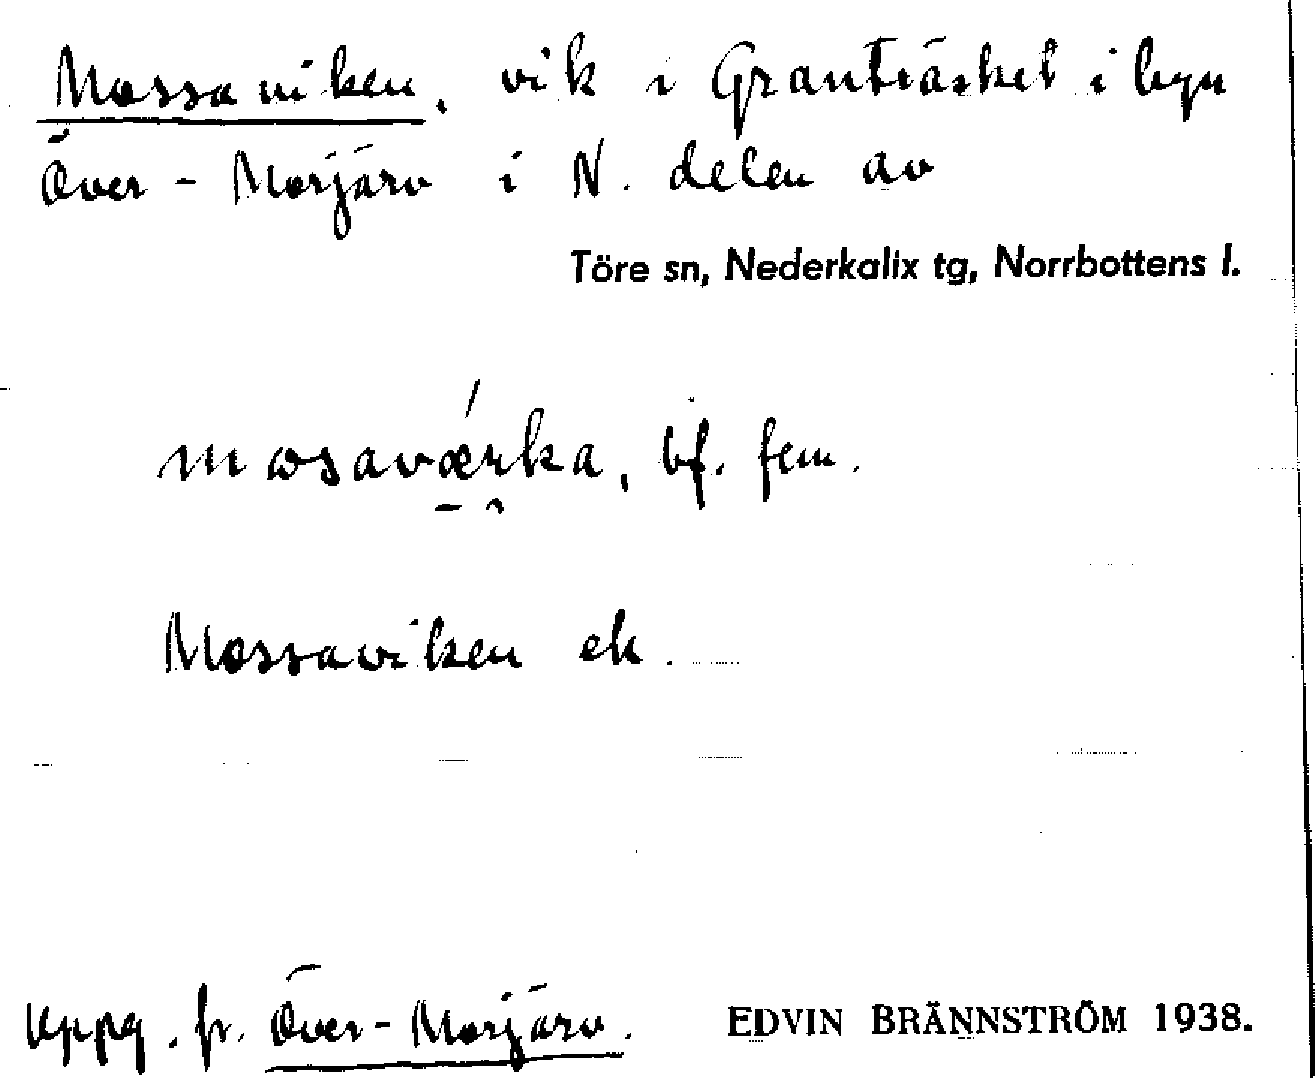 Mossaviken, vik i Granträsket i byn
Över-Morjärv i N. delen av
Töre sn, Nederkalix tg, Norrbottens l.
bf. fem.
Mossaviken ek.
Uppg. fr. Över-Morjärv.
EDVIN BRÄNNSTRÖM 1938.